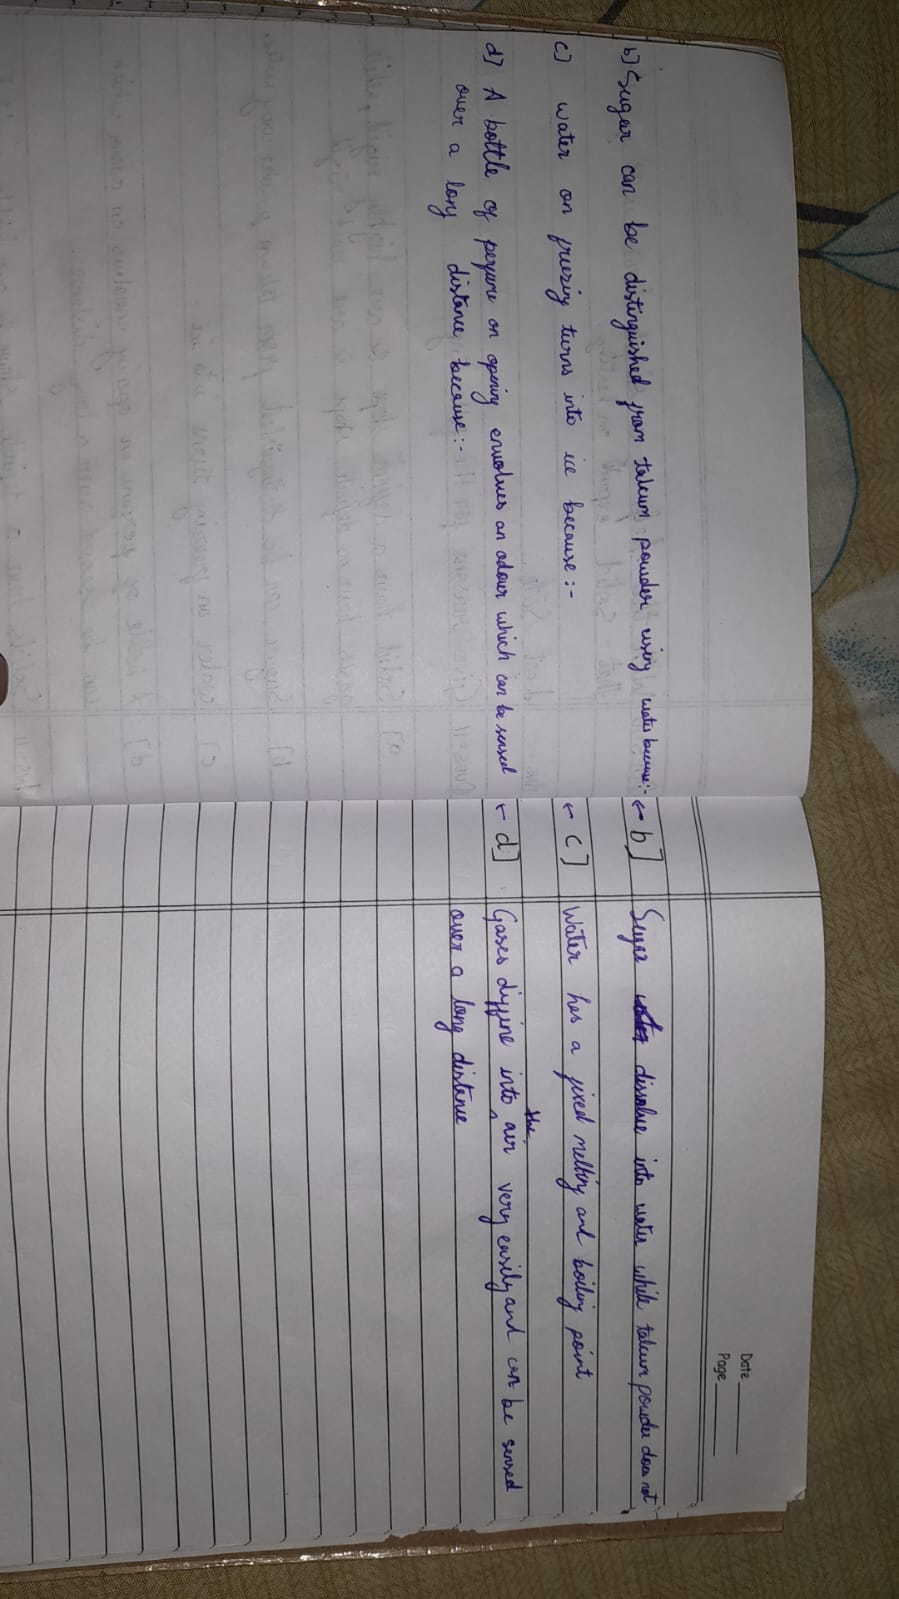 Date
Page
b] Sugar can be distinguished from talcum powder using water because:-
c] water on freezing turns into ice because :-
d] A bottle of perfume on opening envolves an odour which can be sensed
over a long distance because:-
← b] Sugar dissolve into water while talcum powder does not
← c] Water has a fixed melting and boiling point
← d] Gases diffine into the air very easily and can be sensed
over a long distance